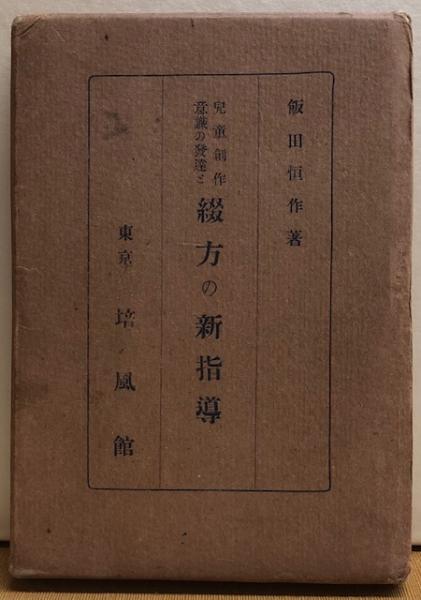 飯田恒作著
兒童創作
意識の發達と
綴方の新指導
東京 培風館